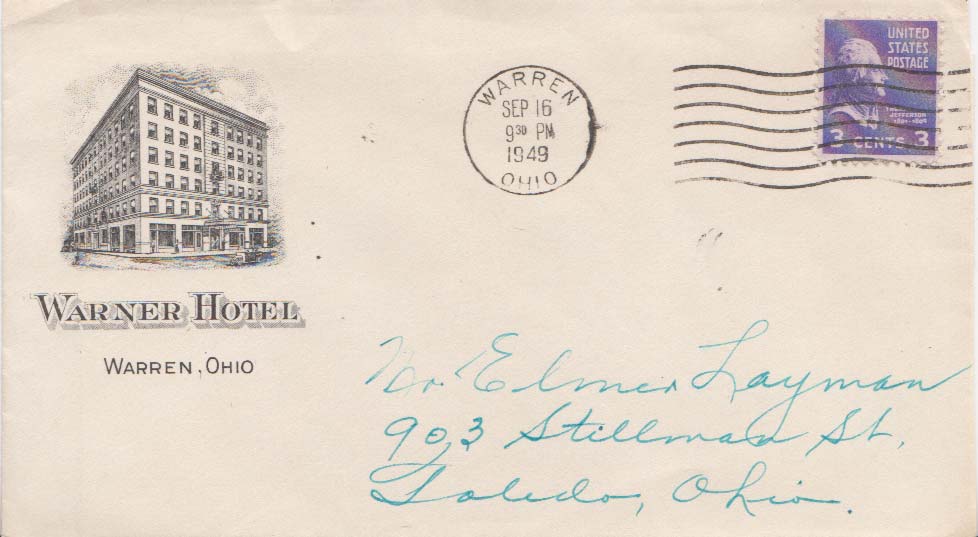 WARREN
SEP 16
9 30 PM
1949
OHIO
UNITED
STATES
POSTAGE
JEFFERSON
3 CENTS 3
WARNER HOTEL
WARREN, OHIO
Mr. Elmer Layman
903 Stillman St.
Toledo, Ohio.